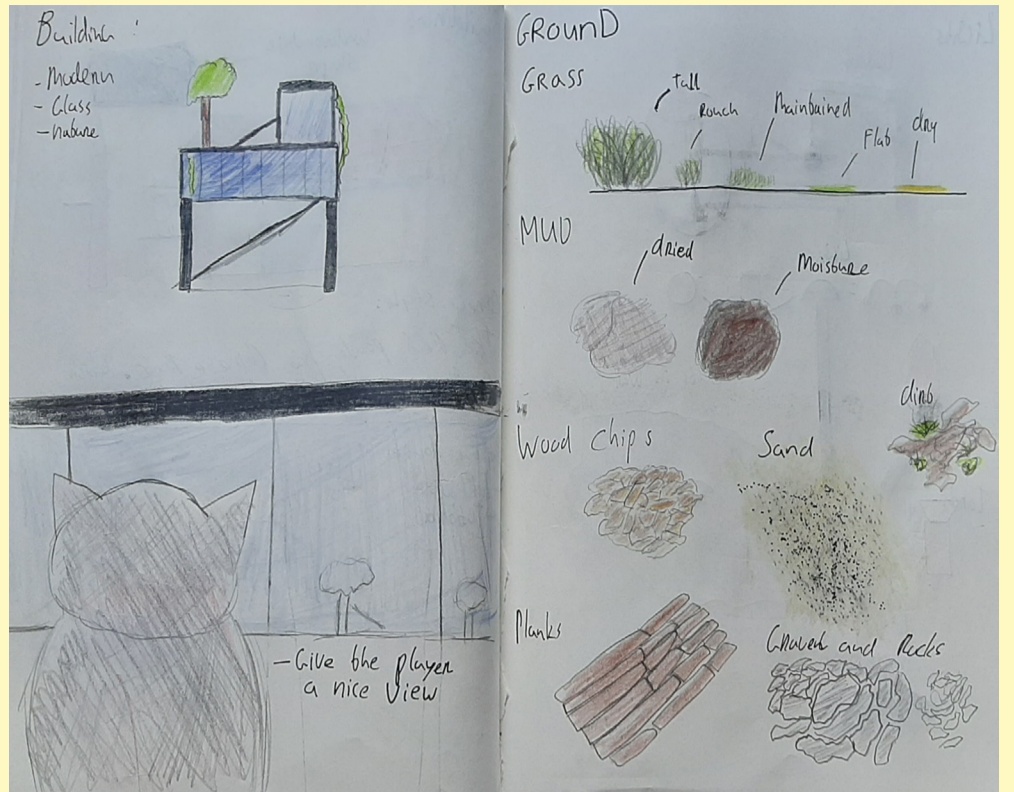 Building:
- Modern
- Glass
- nature
- Give the player
a nice view
GROUND
GRASS
tall
Rough
Maintained
Flat
dry
MUD
dried
Moisture
Wood Chips
Sand
climb
Planks
Gravel and Rocks